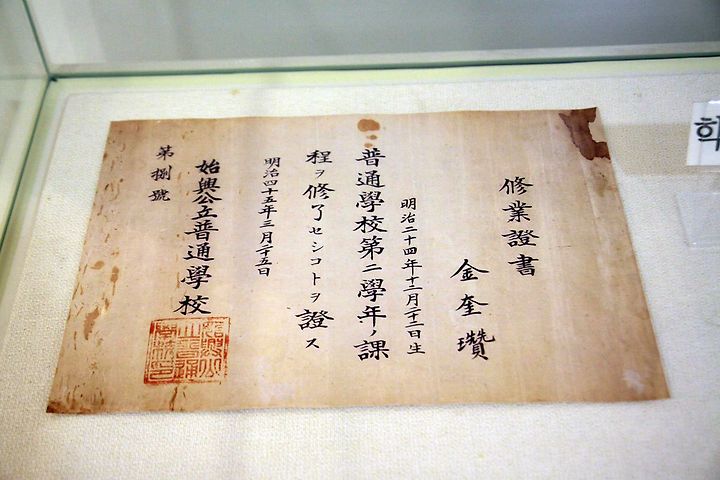 修業證書
金奎瓚
明治二十四年十二月二十二日生
普通學校第二學年ノ課
程ヲ修了セシコトヲ證ス
明治四十五年三月二十五日
始興公立普通學校
第捌號